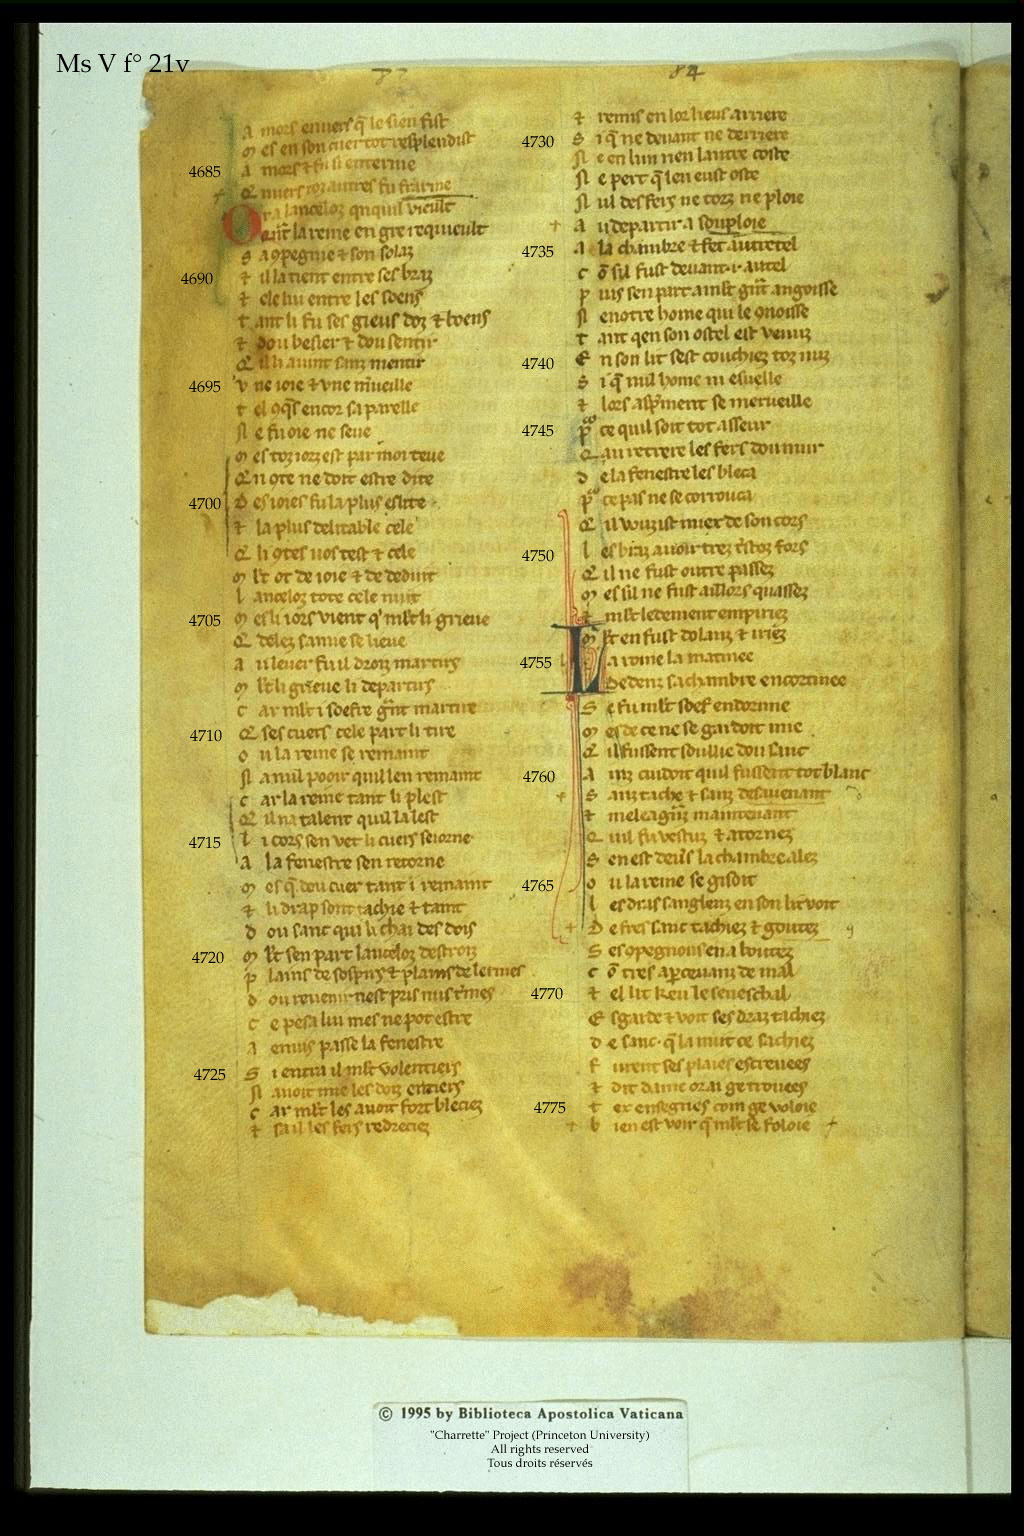 Ms V f° 21v
84
A mors enuers q̄ le sien fist
M es en son cuer tot resplendist
4685
A mors & fu si enterine
Q uuers toz autres fu frarine
O ra lancelot quiquil vieult
Q ant la reine en gre requieult
S a 9pegnie & son solaz
4690
& il la tient entre ses braz
& ele lui entre les soens
T ant li fu ses gieus doz & boens
& dou besier & dou sentir
Q il li auint sanz mentir
4695
V ne ioie & vne m̉ueille
T el 9q̄s encor sa parelle
N e fu oie ne seue
M es toz iorz est par moi teue
Q n 9te ne doit estre dite
4700
D es ioies fu la plus eslite
& la plus delitable cele
Q li 9tes nos test & cele
M lt ot de ioie & de deduit
L ancelot tote cele nuit
4705
M es li iors vient q' mlt li grieue
Q delez samie se lieue
A u leuer fu il droiz martirs
M lt li grieue li departirs
C ar mlt i soefre grant martire
4710
Q ses cuers cele part li tire
O u la reine se remaint
N a nul pooir quil len remaint
C ar la reine tant li plest
Q il na talent quil la lest
4715
L i cors sen vet li cuers seiorne
A la fenestre sen retorne
M es q̄ dou cuer tant i remaint
& li drap sont tachie & taint
D ou sanc qui li chai des dois
4720
M lt sen part lancelot destroiz
P lains de sospirs & plains de lermes
D ou reuenir nest pris nus t'mes
C e pesa lui mes ne pot estre
A enuis passe la fenestre
4725
S i entra il mlt volentiers
N auoit mie les doiz entiers
C ar mlt les auoit fort bleciez
& sa il les fers redreciez
& remis en lor lieus arriere
4730
S i q̄ ne deuant ne derriere
N e en lun nen lautre coste
N e pert q̄ len eust oste
N ul des fers ne torz ne ploie
A u departir a souploie
4735
A la chambre & fet autretel
C ō sil fust deuant .i. autel
P uis sen part a mlt grāt angoisse
N enotre home qui le 9noisse
T ant qen son ostel est venuz
4740
E n son lit sest couchiez toz nuz
S i q̄ nul home ni esuelle
& lors asp̄ment se merueille
4745
P ce quil soit tot asseur
Q au retrere les fers dou mur
D e la fenestre les bleca
P ce pas ne se corrouca
Q il wuzist miex de son cors
4750
L es braz auoir trez t̉stoz fors
Q il ne fust outre passez
M es sil ne fust aillors quassez
& mlt ledement empiriez
M lt en fust dolanz & iriez
4755
L a roine la matinee
D edenz sa chambre encortinee
S e fu mlt soef endormie
M es de ce ne se gardoit mie
Q il fussent soullie dou sanc
4760
A inz cuidoit quil fussent tot blanc
S anz tache & sanz desauenant
& meleagāz maintenant
Q uil fu vestuz & atornez
S en est deu's la chambre alez
4765
O u la reine se gisoit
L es dras sanglenz en son lit voit
D e fres sanc tachiez & goutez
S es opegnons en a boutez
C ō tres ap̄ceuanz de mal
4770
& el lit Keu le seneschal
E sgarde & voit ses draz tachiez
D e sanc. q̄ la nuit ce sachiez
F urent ses plaies escreuees
& dit dame or ai ge trouees
4775
T ex ensegnes com ge voloie
B ien est voir q̄ mlt se foloie
© 1995 by Biblioteca Apostolica Vaticana
"Charrette" Project (Princeton University)
All rights reserved
Tous droits réservés